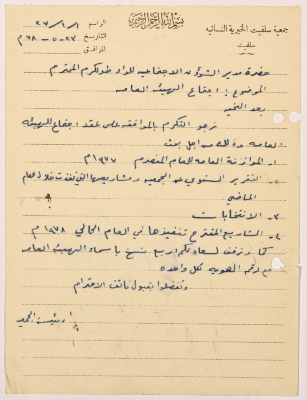 بسم الله الرحمن الرحيم
جمعية سلفيت الخيرية النسائية
سلفيت
الرقم ٢٦/١/١
التاريخ ٢٧-٥-٧٨م
الموافق
حضرة مدير الشؤون الاجتماعية للواء طولكرم المحترم
الموضوع : اجتماع الهيئة العامة
بعد التحية
نرجو التكرم بالموافقة على عقد اجتماع للهيئة
العامة وذلك من اجل بحث
١- الموازنة العامة للعام المنصرم ١٩٧٧م
٢- التقرير السنوي عن الجمعية ومشاريعها التي نفذت خلال العام
الماضي
٣- الانتخابات
٤- المشاريع المقترح تنفيذها في العام الحالي ١٩٧٨م
كما نرفق لسعادتكم اربع نسخ باسماء الهيئة العامة
مع رقم الهوية لكل واحدة
وتفضلوا بقبول فائق الاحترام
رئيسة الجمعية